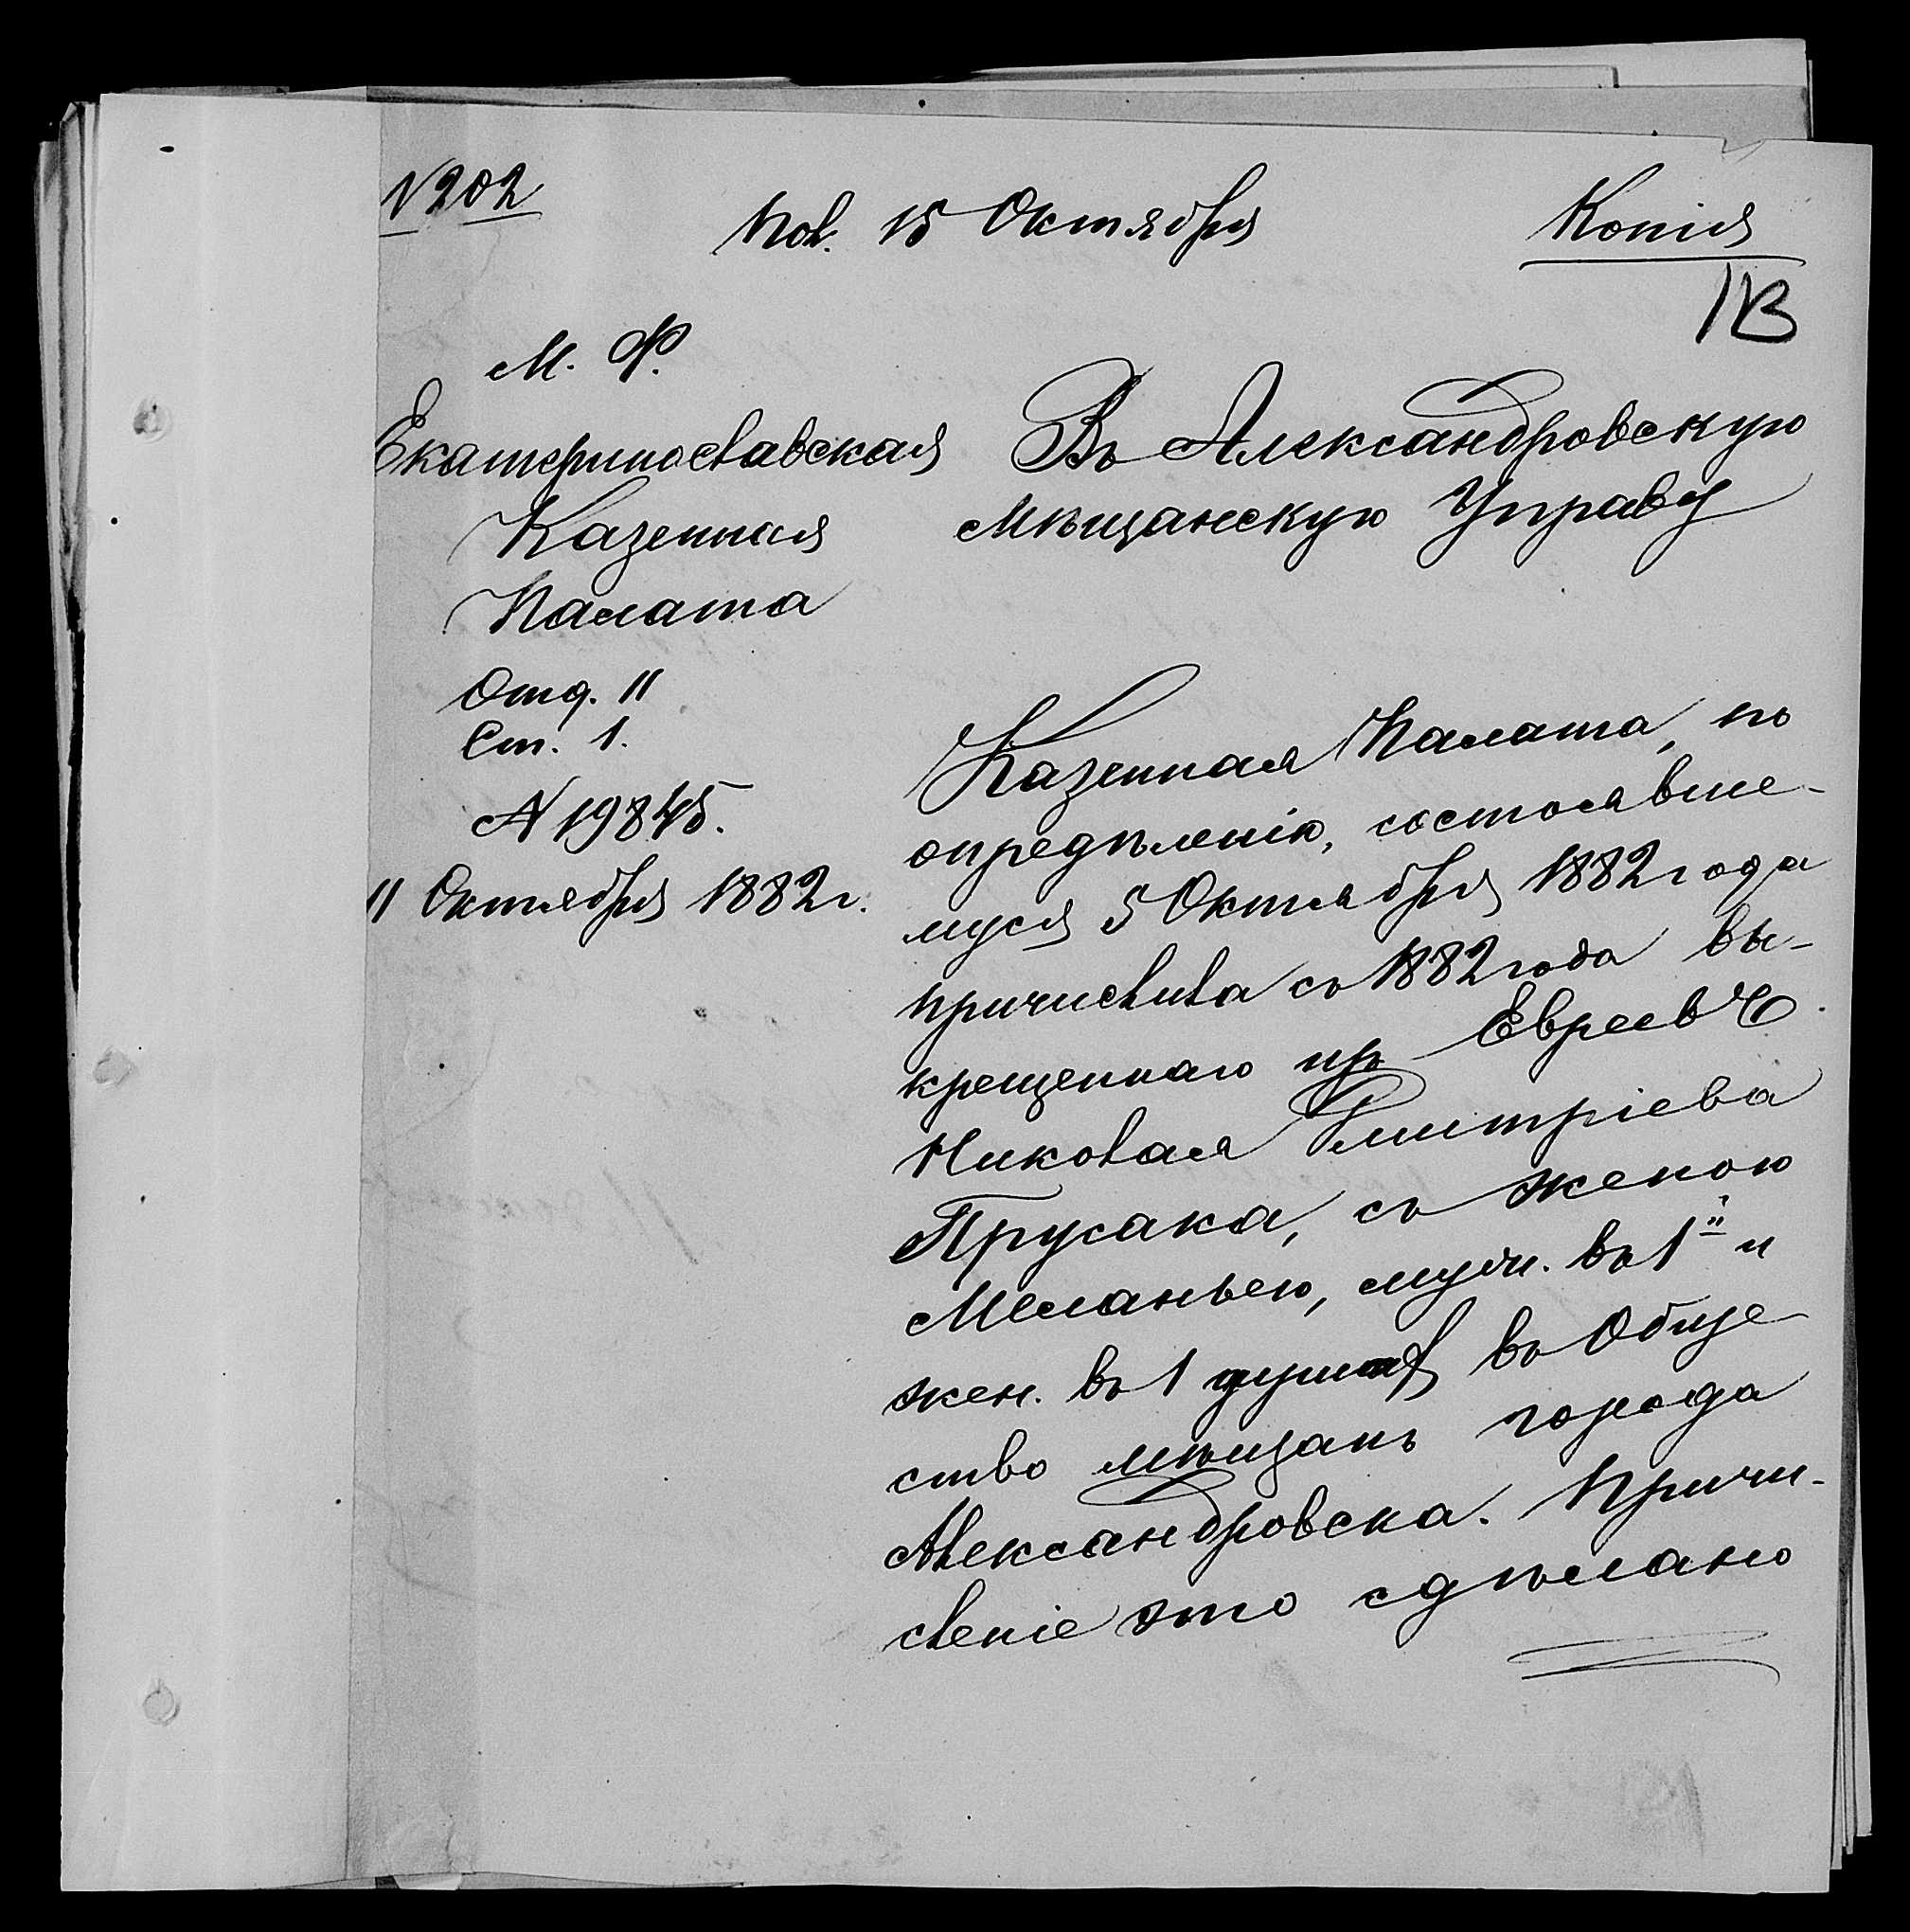 № 202
Пол. 15 Октября
Копія
М. Ф.
Екатеринославская
Казенная
Палата
Отд. II
Ст. 1.
№ 19845.
11 Октября 1882 г.
Въ Александровскую
Мѣщанскую Управу
Казенная Палата, по
опредѣленію, состоявше-
муся 5 Октября 1882 года
причислила съ 1882 года вы-
крещеннаго изъ Евреевъ
Николая Дмитріева
Прусака, съ женою
Меланьею, муж. въ 1й и
жен. въ 1 душѣ въ Обще-
ство мѣщанъ города
Александровска. Причи-
сленіе это сдѣлано